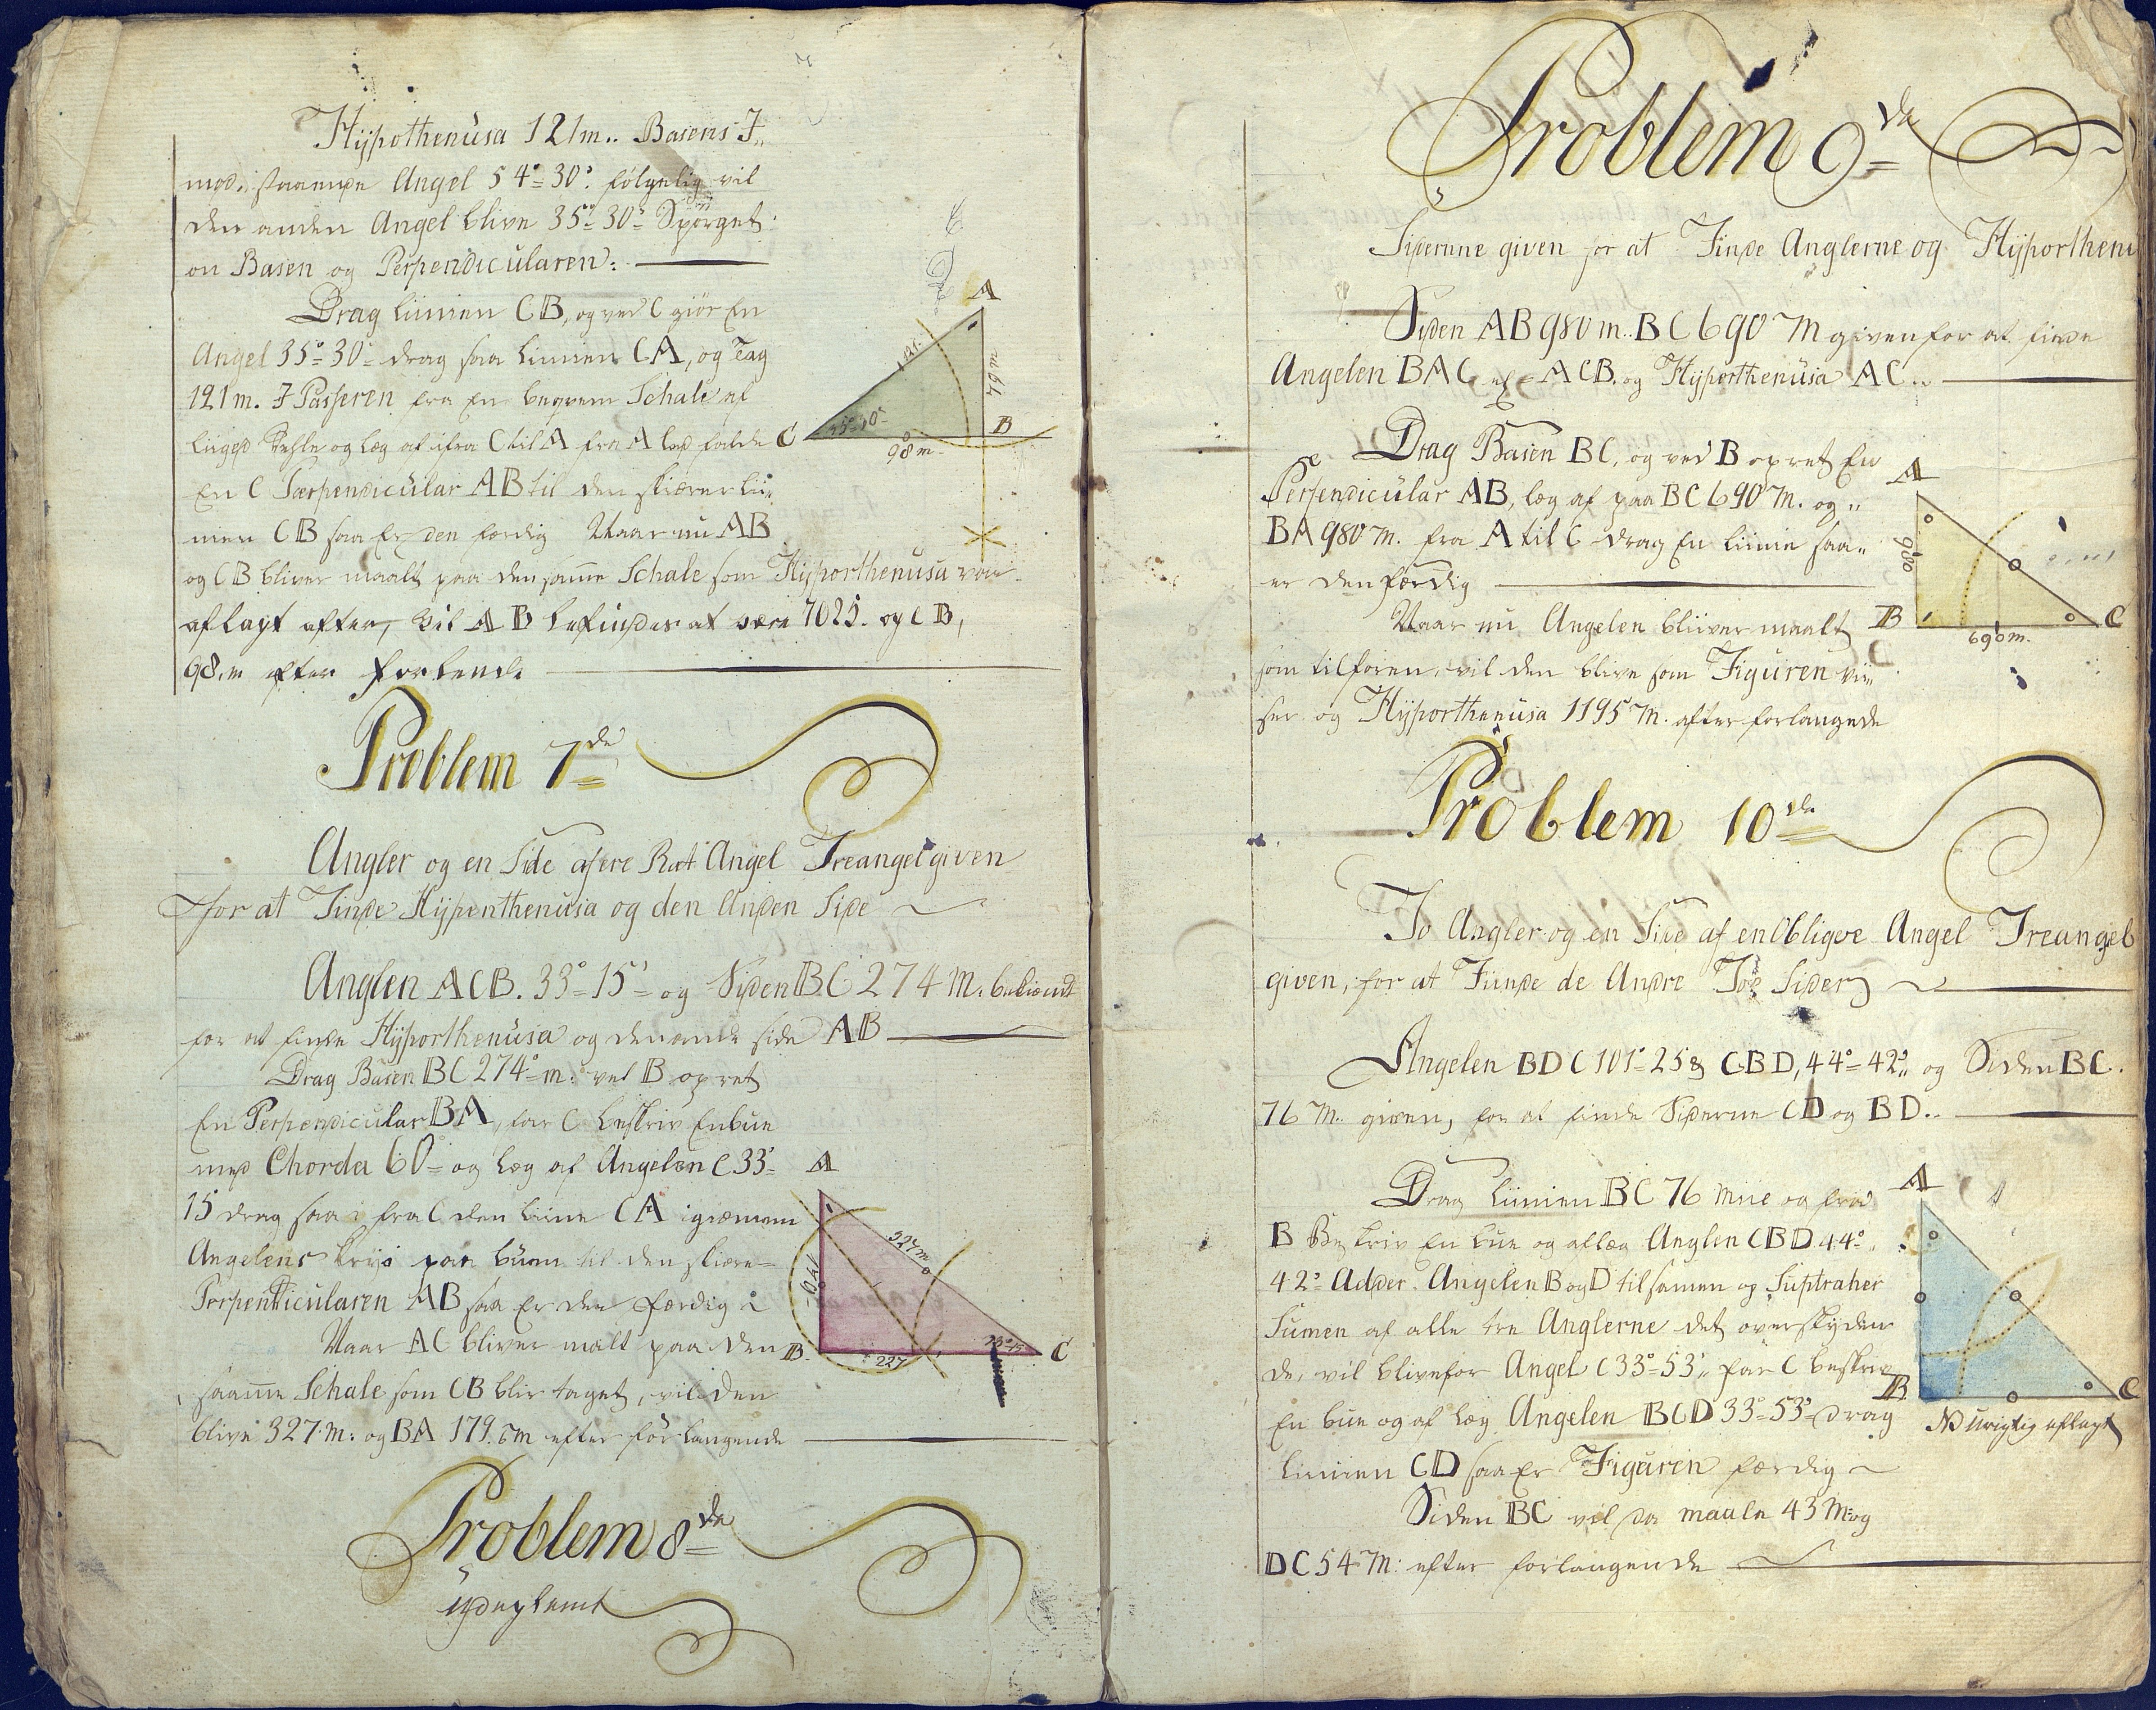 Hÿpothenusa 121m.. Basens I„
mod„ staaende Angel 54°= 30'. følgelig vil
den anden Angel blive 35°= 30'= Spörget
on Basen og Perpendicularen:
Drag linien CB, og ved C giör En
Angel 35°= 30'= drag saa linien CA, og Tag
121m. I Passeren fra En beqvem Schale af
Liiged Dehle og læg af ifra C til A fra A lad falde
En C Pærpendicular AB til den skiærer Lii„
nien CB saa Er den færdig Naar nu AB
og CB bliver maalt paa den samme Schale som Hÿporthenusa var
aflagt after, vil AB befindes at være 7025. og CB,
98.m efter forlende
A
121.
m 67
35°30'
C
B
98m
Problem 7de
Angler og en Side af ere Ret Angel Treangel given
for at Finde Hÿpenthenusia og den Anden Side
Anglen ACB. 33°= 15'= og Siden BC 274 M. bekiendt
for at finde Hÿporthenusa og den ande side AB
Drag Basen BC 274= m: ved B opret
En Perpendicular BA, far C beskriv En bue
med Chorda 60= og læg af Angelen C 33=
15 drag saa i fra C den Liine CA igiænnem
Angelens krys paa buen til den skiære=
Perpendicularen AB saa Er den færdig
Naar AC bliver malt paa den
saamme Schale som CB blir taget, vil den
blive 327.m: og BA 179.6m efter för langende
A
327m
179
33°15
B
227
C
Problem 8de
udeglemt
Problem 9de
Siderne given for at Finde Anglerne og Hÿporthenu
Siden AB 980 m.. BC 690 m given for at finde
Angelen BAC af ACB. og Hÿporthenusia AC..
Drag Basen BC, og ved B opret En
Perpendicular AB, læg af paa BC 690 m. og „
BA 980 m. fra A til C drag En Linie saa„
er den færdig
Naar nu Angelen bliiver maalt
som tilforen, vil den blive som Figuren vii„
ser og Hÿporthenusa 1195 m. after forlangede
A
980
B
690m.
C
Problem 10de
To Angler og en Side af en Obligve Angel Treangel
given, for at Fiinde de Andre Toe Sider
Angelen BDC 101°= 25 & CBD, 44°= 42'„ og Siden BC.
76 M.. given, for at finde Siderne CD og BD..
Drag Liinien BC 76 Miie og fra
B Beskriv En bue og aflæg Anglen CBD 44°„
42'= Adder. Angelen B og D tilsamen og Suptraher
Sumen af alle tre Anglerne det overskyden
de, vil blive for Angel C 33°= 53'„ far C beskriv
En bue og af læg Angelen BCD 33°= 53'= drag
Linien CD saa Er Figuren færdig
Siden BC vil da maale 43 M: og
DC 54 M: efter forlangende
A
B
C
NB urigtig aflagt